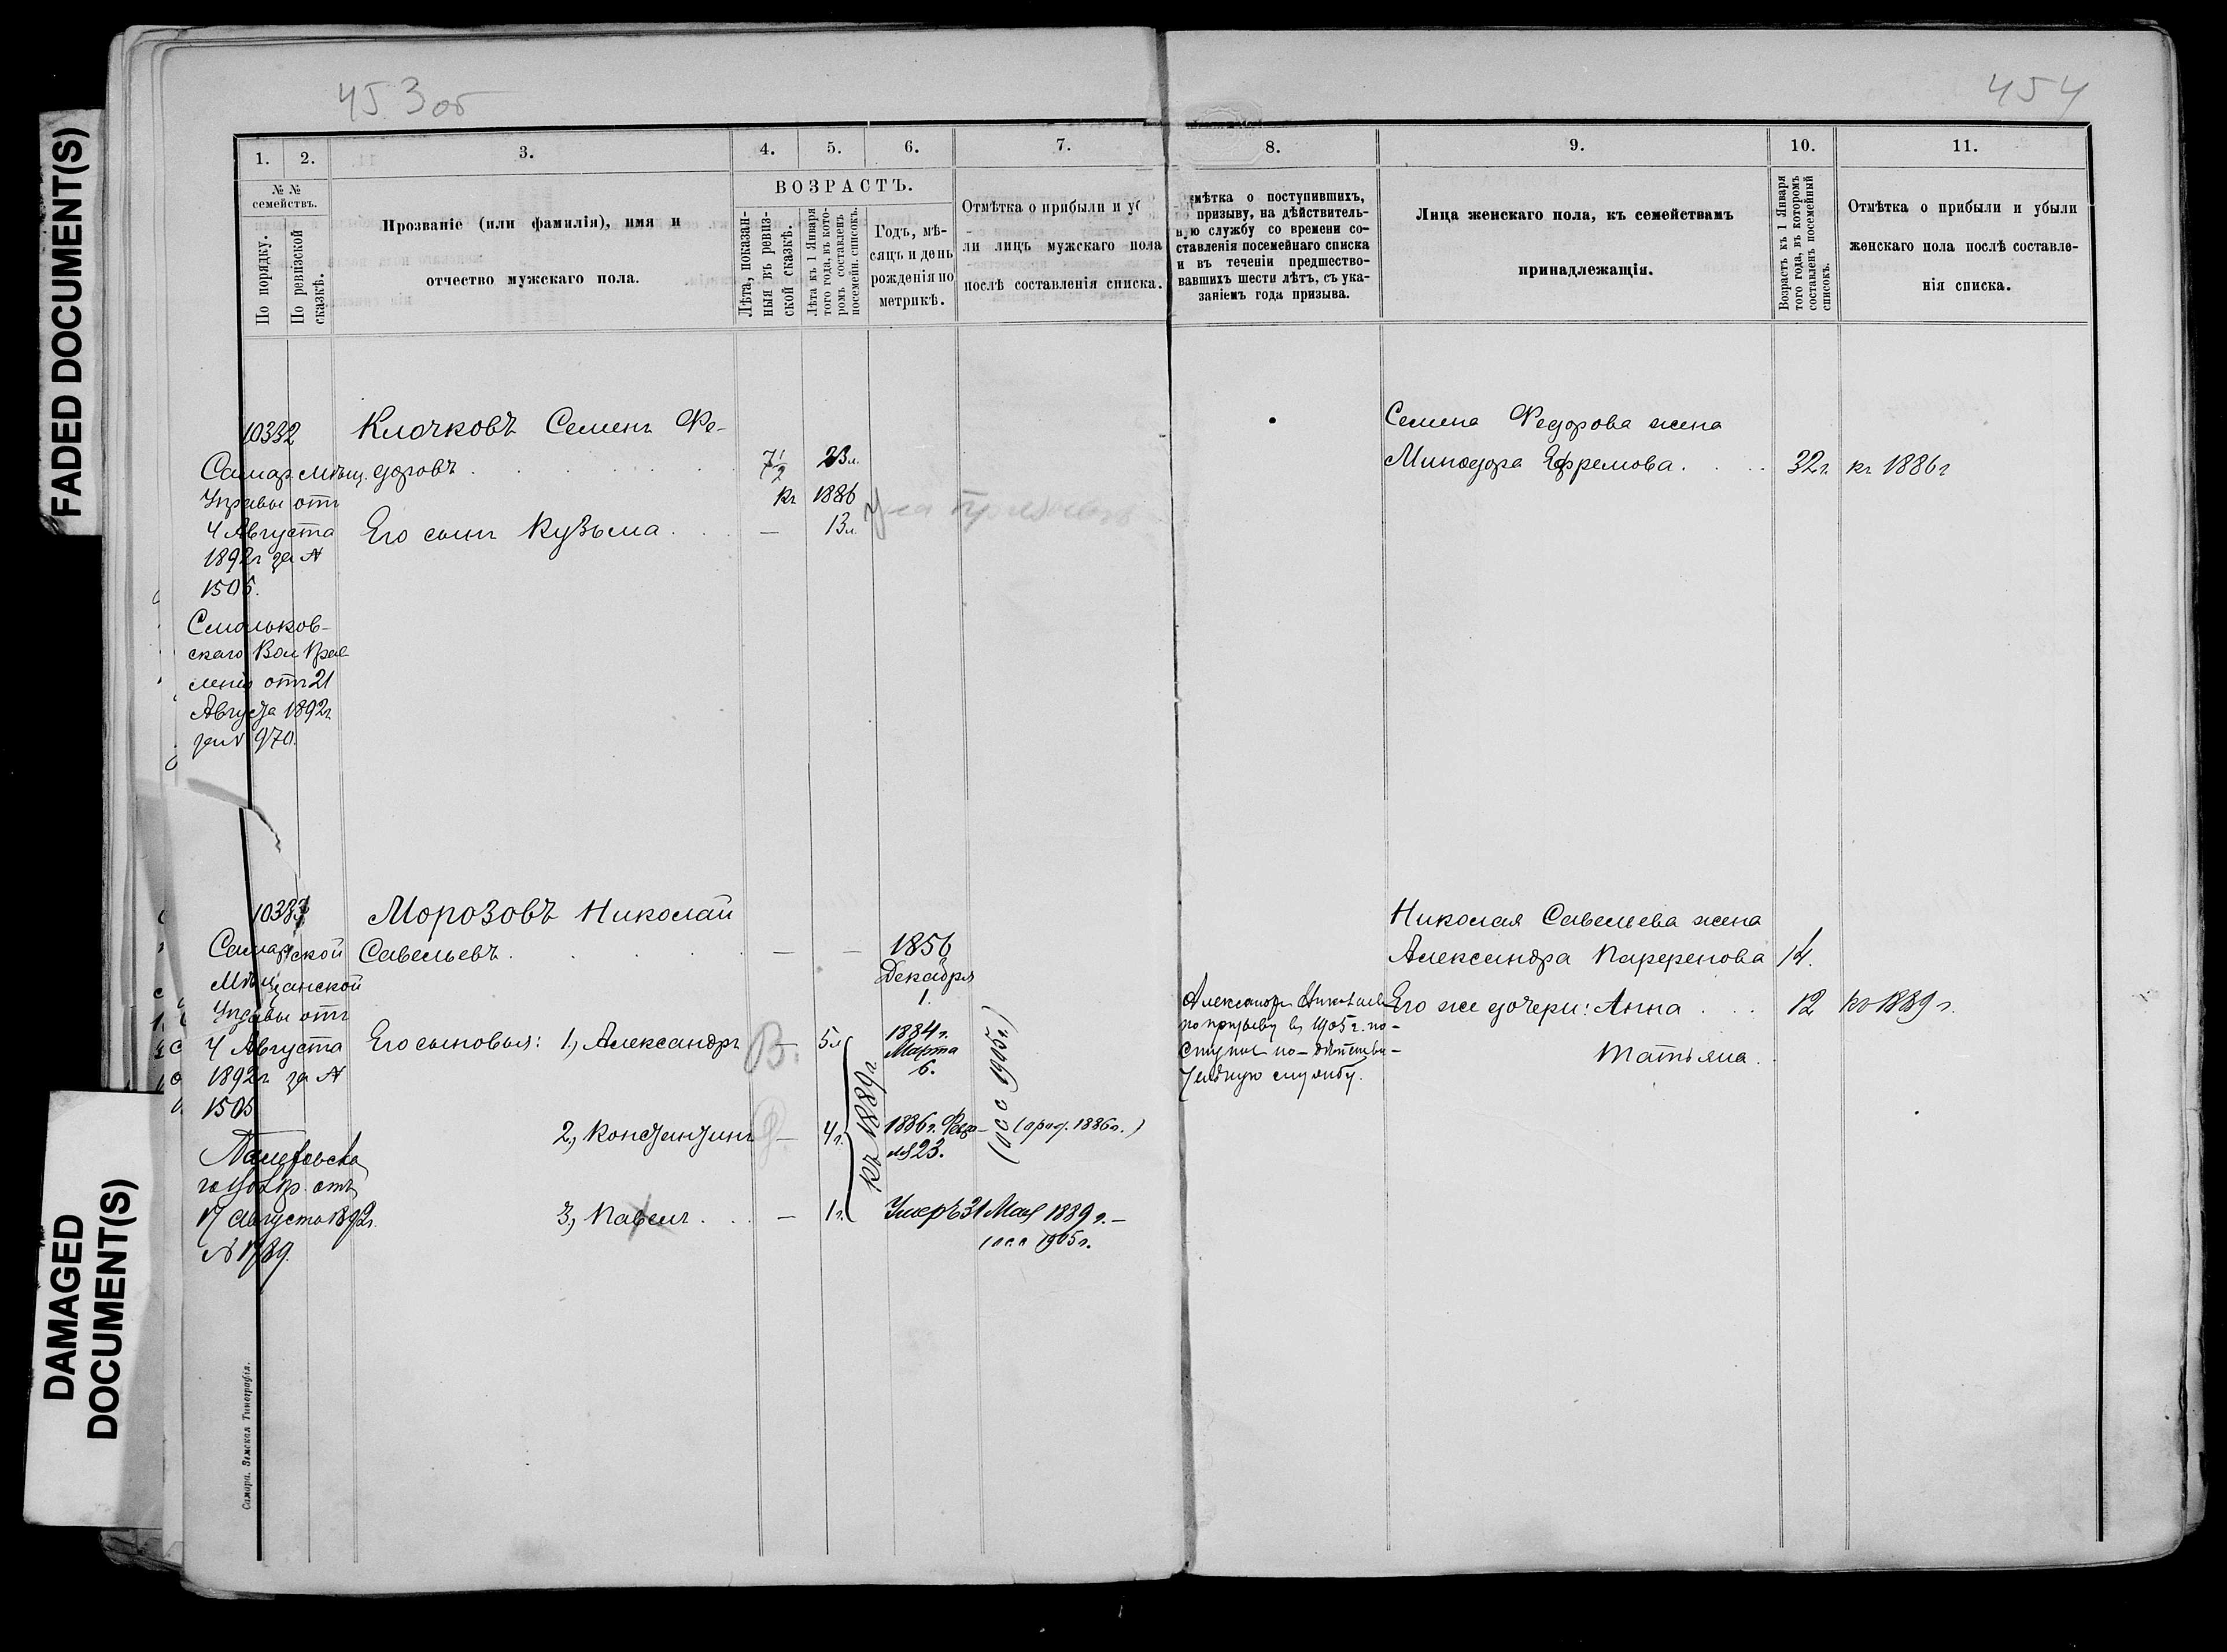 FADED DOCUMENT(S)
DAMAGED
DOCUMENT(S)
453об
1. 2. 3. 4. 5. 6. 7.
№ №
семействъ.
По порядку.
По ревизской
сказкѣ.
Прозваніе (или фамилія), имя и
отчество мужскаго пола.
ВОЗРАСТЪ.
Лѣта, показан-
ныя въ ревиз-
ской сказкѣ.
Лѣта къ 1 Января
того года, въ кото-
ромъ составленъ
посемейн. списокъ.
Годъ, мѣ-
сяцъ и день
рожденія по
метрикѣ.
Отмѣтка о прибыли и уб
ли лицъ мужскаго пола
послѣ составленія списка.
10332
Самар. Мѣщ.
Управы отъ
4 Августа
1892г за №
1505.
Смольков-
скаго Вол Прав
ленія отъ 21
Августа 1892г
за № 970.
Клочковъ Семенъ Фе-
доровъ
7 1/2
23л.
къ 1886
Его сынъ Кузьма . . — 13л.
Самарской
Мѣщанской
Управы отъ
4 Августа
1892г. за №
1505
17 Августа 1892г.
№ 1789.
Морозовъ Николай
Савельевъ . . . . . — —
1856
Декабря
1.
Его сыновья: 1, Александръ В. 5л
1884г.
Марта
6.
2, Константинъ — 4г.
1886г. Фев-
ля 23.
(род. 1886г.)
къ 1889г.
(осс 1905г.)
3, Павелъ . . . — 1г.
Умеръ 31 Мая 1889г.—
(осс 1905г.
Самара. Земская Типографія.
454
8. 9. 10. 11.
мѣтка о поступившихъ,
призыву, на дѣйствитель-
ную службу со времени со-
ставленія посемейнаго списка
и въ теченіи предшество-
вавшихъ шести лѣтъ, съ ука-
заніемъ года призыва.
Лица женскаго пола, къ семействамъ
принадлежащія.
Возрастъ къ 1 Января
того года, въ которомъ
составленъ посемейный
списокъ.
Отмѣтка о прибыли и убыли
женскаго пола послѣ составле-
нія списка.
Семена Федорова жена
Минодора Ефремова . . . 32г. къ 1886г
Николая Савельева жена
Александра Парфенова 14.
Его же дочери: Анна . . . 12 къ 1889 г.
Татьяна .
Александръ Николаевъ
по призыву въ 1905г. по-
ступилъ на дѣйстви-
тельную службу.